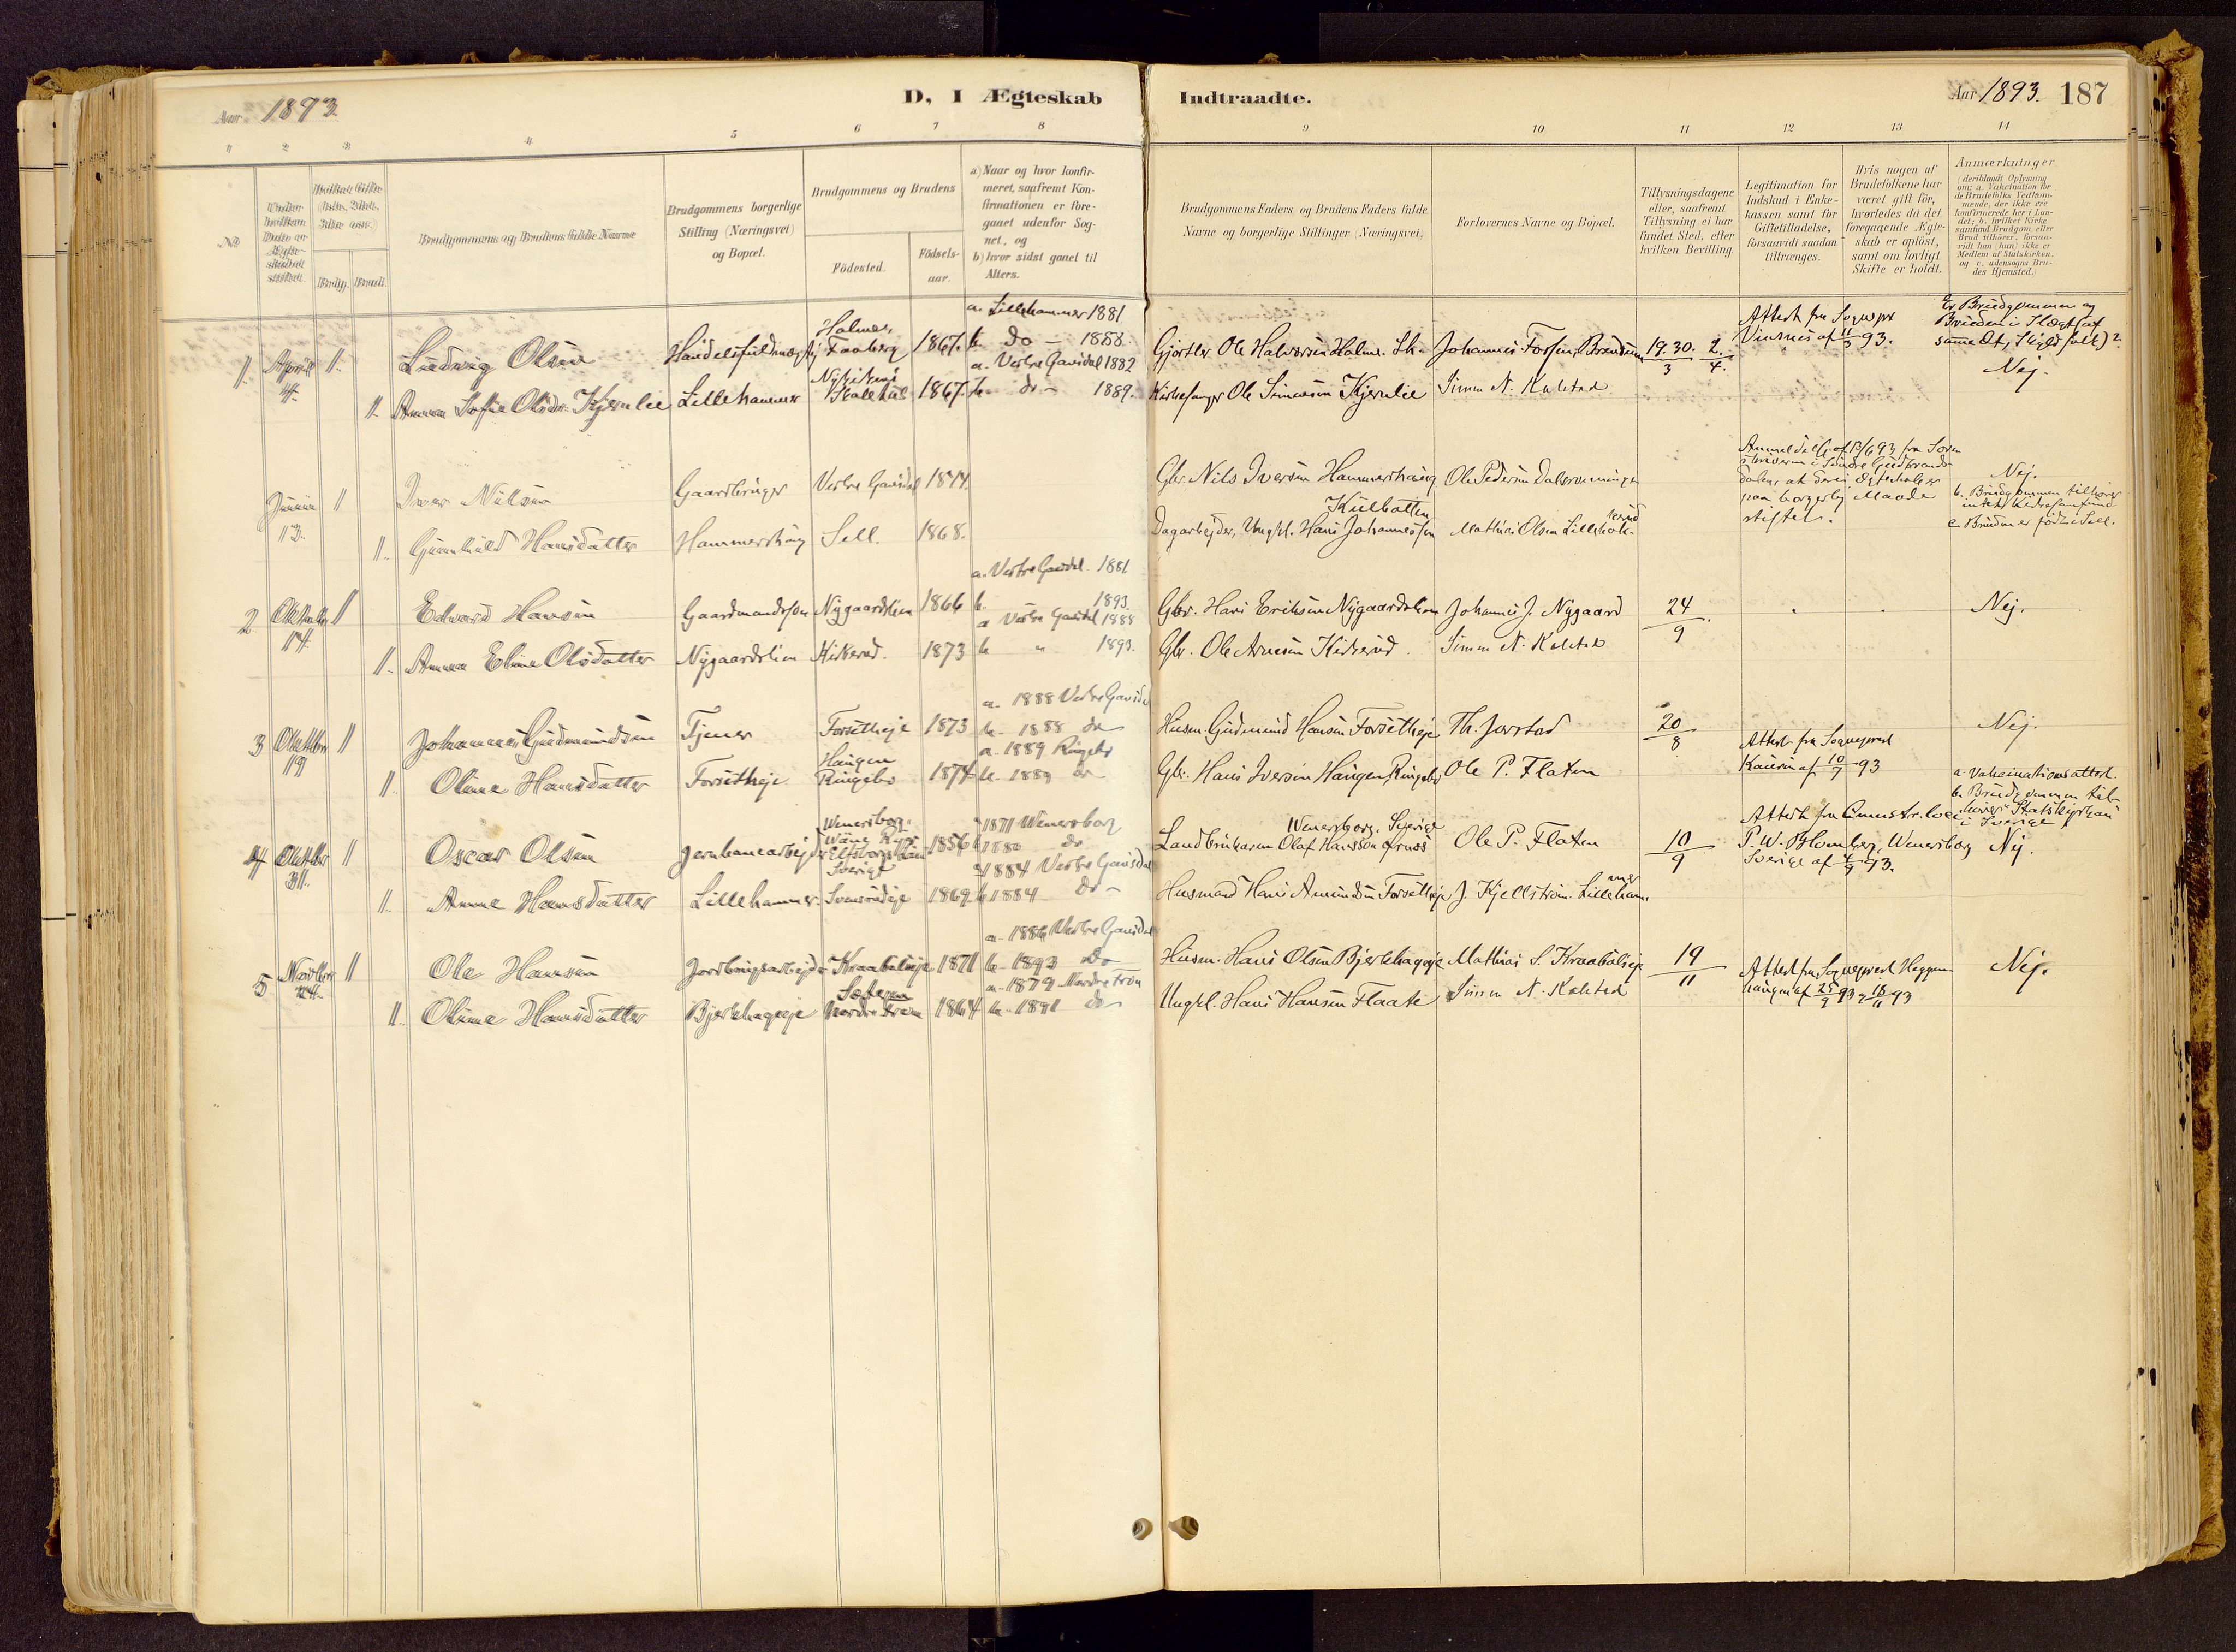 Aar 1893
D, I Ægteskab
Indtraadte.
Aar 1893. 187
1 2 3 4 5 6 7 8 9 10 11 12 13 14
No
Under hvilken Dato er Ægteskabet stiftet.
Hvilket Gifte
Brudg. Brud.
Brudgommens og Brudens fulde Navne
Brudgommens borgerlige Stilling (Næringsvei) og Bopæl.
Brudgommens og Brudens
Födested.
Födselsaar.
a) Naar og hvor konfirmeret, saafremt Konfirmationen er foregaaet udenfor Sognet, og
b) hvor sidst gaaet til Alters.
Brudgommens Faders og Brudens Faders fulde Navne og borgerlige Stillinger (Næringsvei)
Forlovernes Navne og Bopæl.
Tillysningsdagene eller, saafremt Tillysning ei har fundet Sted, efter hvilken Bevilling.
Legitimation for Indskud i Enkekassen samt for Giftetilladelse, forsaavidt saadan tiltrænges.
Hvis nogen af Brudefolkene har været gift før, hvorledes da det foregaaende Ægteskab er opløst, samt om lovligt Skifte er holdt.
Anmærkninger
(deriblandt Oplysning om: a. Vakcination for de Brudefolks Vedkommende, der ikke ere konfirmerede her i Landet; b. hvilket Kirkesamfund Brudgom. eller Brud tilhører, forsaavidt han (hun) ikke er Medlem af Statskirken. og c. udensogns Brudes Hjemsted.)
1. April 4. 1. Ludvig Olsen Handelsfuldmægtig Holmen, Faaberg 1867. a. Lillehammer 1881 b. do - 1888. Ole Halvorsen Holme Johannes Fossen, Brendum 19. 30. 2. 3 4. Attest fra Sognepr Vinsnes af 11/3 93. Er Brudgommen og Bruden i Slægt (af samme Æt, Skyldfolk)? Nej.
1. Anna Sofie Olsdr. Kjernlie Lillehammer 1867. a. Vestre Gausdal 1882 b. do - 1889. Kirkesanger Ole Simensen Kjernlie Simen N. Kolstad
Junii 13. 1 Iver Nilsen Gaardbruger Vestre Gausdal 1874. Gbr. Nils Iversen Hammershaug Ole Pedersen Anmeldelse af 13/6 93 fra Sorenskriveren i Søndre Gudbrandsdalen, at deres Ægteskab er paa borgerlig Maade stiftet. Nej. b. Brudgommen tilhører intet Kirkesamfund c. Bruden er født i Sell.
1. Gunhild Hansdatter Hammershaug Sell. 1868. Dagarbejder, Ungkl. Hans Johannessen Kulbatten Mathias Olsen
2 Oktober 14. 1 Edvard Hansen Gaardmandssøn Nygaardslien 1866 a. Vestre Gausdal 1881 b. 1893. Gbr. Hans Eriksen Nygaardslien Johannes J. Nygaard 24/9 Nej.
1. Anna Eline Olsdatter Nygaardslien Kiterud. 1873 a Vestre Gausdal 1888 b " 1893. Gbr. Ole Arnesen Kiterud. Simen N. Kolstad
3 Oktober 19 1 Johannes Gudmundsen Tjener Forsetheje 1873 a. 1888 Vestre Gausdal b. 1888 do Husm. Gudmund Hansen Forsetheje Th. Jorstad 20/8 Nej.
1. Oline Hansdatter Forsetheje Haugen Ringebu 1874 a. 1889 Ringebu b. 1889 do Gbr. Hans Iversen Haugen, Ringebu Ole P. Flaten Attest fra Sogneprest Kaurin af 10/7 93
4 Oktober 31. 1 Oscar Olsen Jernbanearbejder Wenersborg. Elfsborgs Län Sverige 1856 a 1871 Wenersborg b 1880 do Landbrugaren Olaf Hansson Wenersborg. Sverige Ole P. Flaten 10/9 Attest fra P. W. Blomberg, Wenersborg Sverige af 4/9 93. a. Vakcinationsattest. b. Brudgommen tilhører Statskyrkan i Sverige Nej.
1. Anne Hansdatter Lillehammer. Svensrudeje 1869 a 1884 Vestre Gausdal b 1884 do - Husmand Hans Amundsen Forsetheje J. Kjellström. Lillehammer
5 Novbr. 24. 1 Ole Hansen Jordbrugsarbejder Kraabølseje 1871 a. 1886 Vestre Gausdal b. 1893 do Husm. Hans Olsen Bjerkhageeje Mathias S. Kraabølseje 19/11 Attest fra Sogneprest Heggenhaugen af 25/9 93, 18/11 93 Nej.
1. Oline Hansdatter Bjerkhageeje Sæteren Nordre Fron 1864 a. 1879 Nordre Fron b. 1891 do Ungkl. Hans Hansen Flaate Simen N. Kolstad